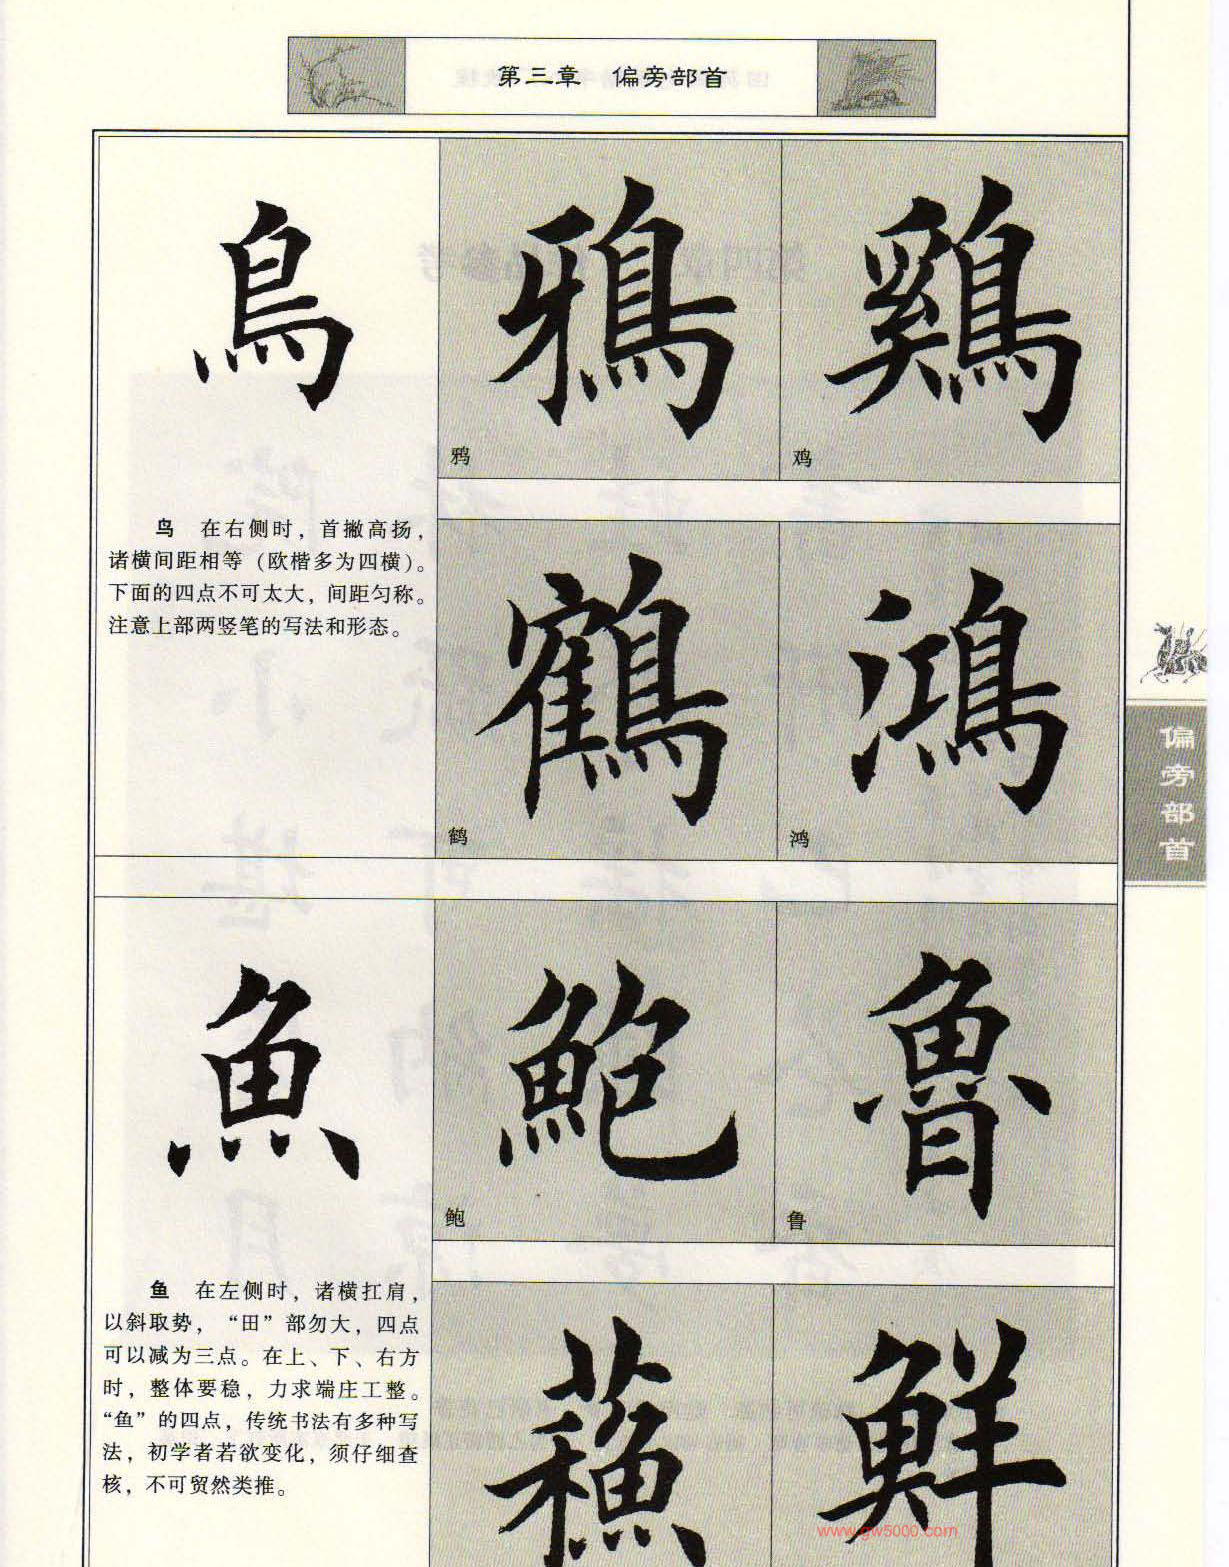 第三章 偏旁部首
鳥
鴉
鷄
鸦
鸡
鸟 在右侧时，首撇高扬，
诸横间距相等（欧楷多为四横）。
下面的四点不可太大，间距匀称。
注意上部两竖笔的写法和形态。
鶴
鴻
鹤
鸿
偏旁部首
魚
鮑
魯
鲍
鲁
鱼 在左侧时，诸横扛肩，
以斜取势，“田”部勿大，四点
可以减为三点。在上、下、右方
时，整体要稳，力求端庄工整。
“鱼”的四点，传统书法有多种写
法，初学者若欲变化，须仔细查
核，不可贸然类推。
蘓
鮮
www.gw5000.com